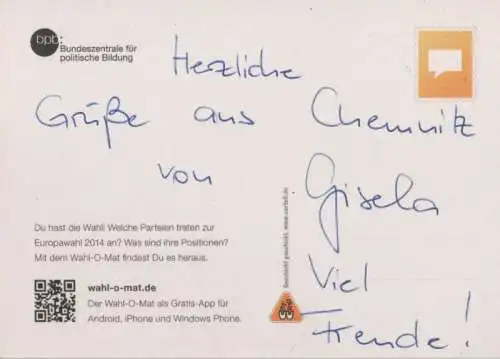 bpb:
Bundeszentrale für
politische Bildung
Herzliche
Grüße aus Chemnitz
von Gisela
Viel
Freude!
Du hast die Wahl! Welche Parteien treten zur
Europawahl 2014 an? Was sind ihre Positionen?
Mit dem Wahl-O-Mat findest Du es heraus.
wahl-o-mat.de
Der Wahl-O-Mat als Gratis-App für
Android, iPhone und Windows Phone.